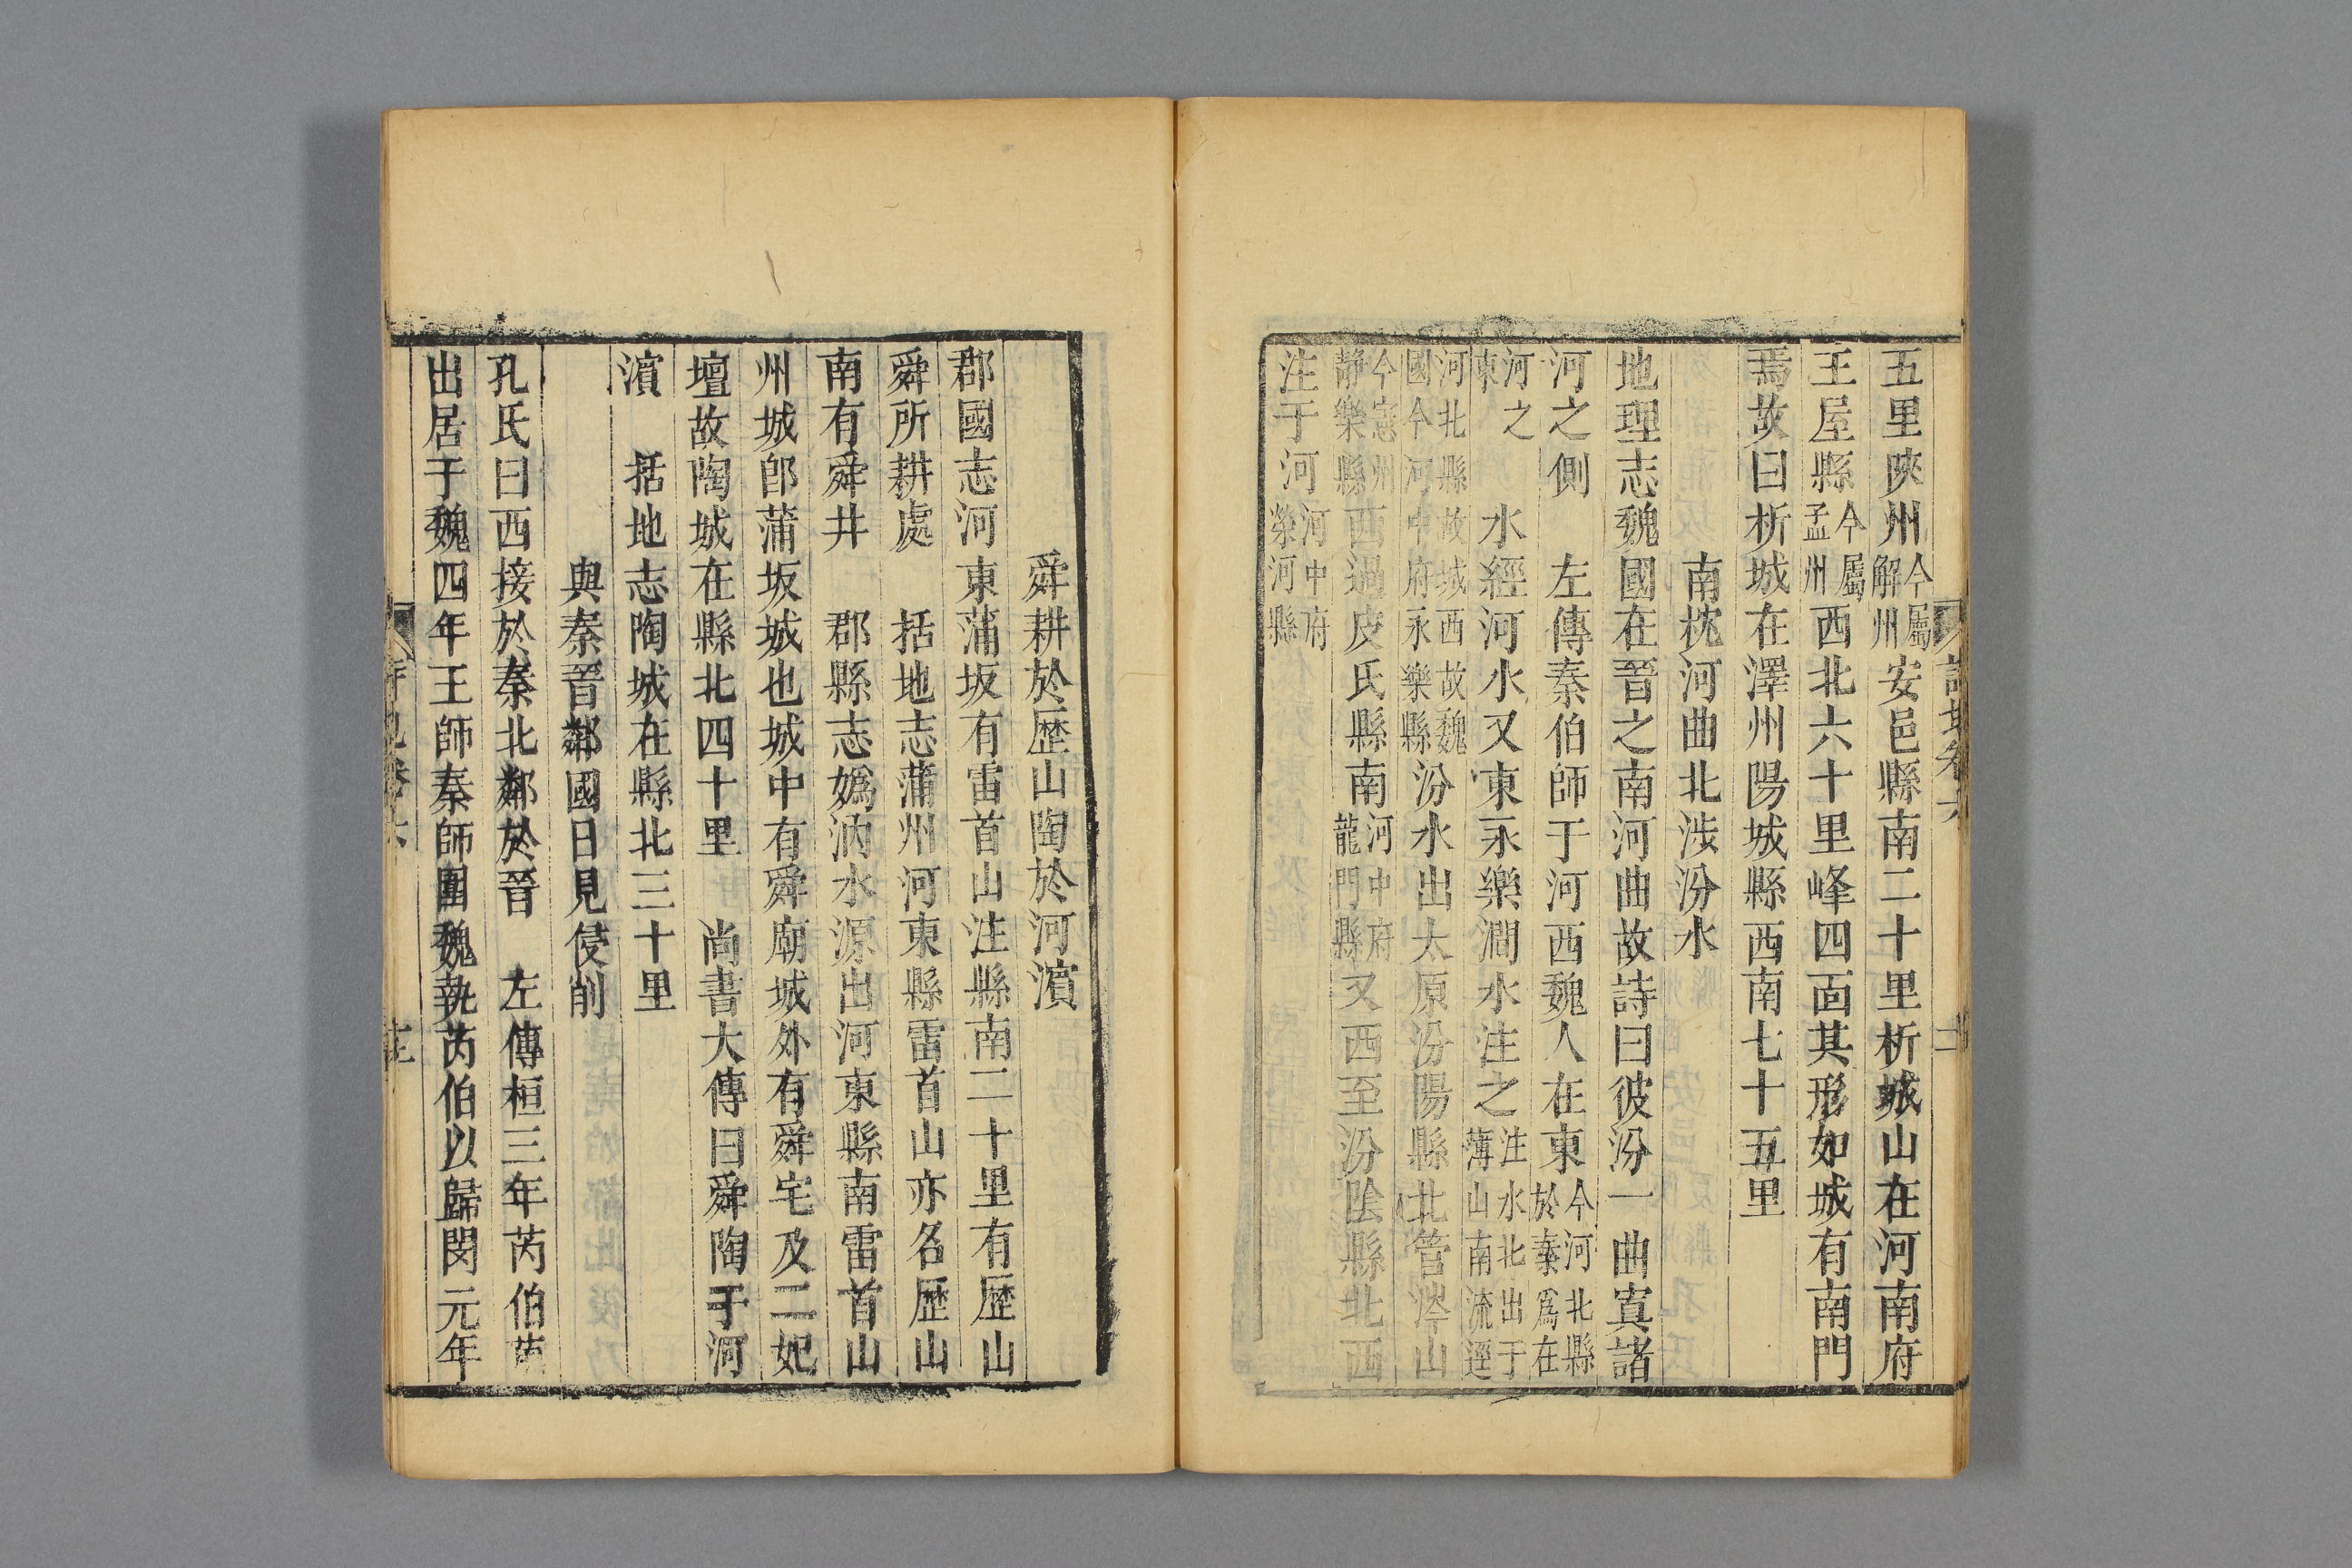 五里陝州今屬解州安邑縣南二十里析城山在河南府
王屋縣今屬孟州西北六十里峰四面其形如城有南門
焉故曰析城在澤州陽城縣西南七十五里
南枕河曲北涉汾水
地理志魏國在晉之南河曲故詩曰彼汾一曲寘諸
河之側　左傳秦伯師于河西魏人在東今河北縣於秦為在
河之東　水經河水又東永樂澗水注之注水北出于薄山南流逕
河北縣故城西故魏國今河中府永樂縣汾水出太原汾陽縣北管涔山
今憲州靜樂縣西過皮氏縣南河中府龍門縣又西至汾陰縣北西
注于河河中府榮河縣
舜耕於歷山陶於河濱
郡國志河東蒲坂有雷首山注縣南二十里有歷山
舜所耕處　括地志蒲州河東縣雷首山亦名歷山
南有舜井　郡縣志媯汭水源出河東縣南雷首山
州城卽蒲坂城也城中有舜廟城外有舜宅及二妃
壇故陶城在縣北四十里　尚書大傳曰舜陶于河
濱　括地志陶城在縣北三十里
與秦晉鄰國日見侵削
孔氏曰西接於秦北鄰於晉　左傳桓三年芮伯萬
出居于魏四年王師秦師圍魏執芮伯以歸閔元年